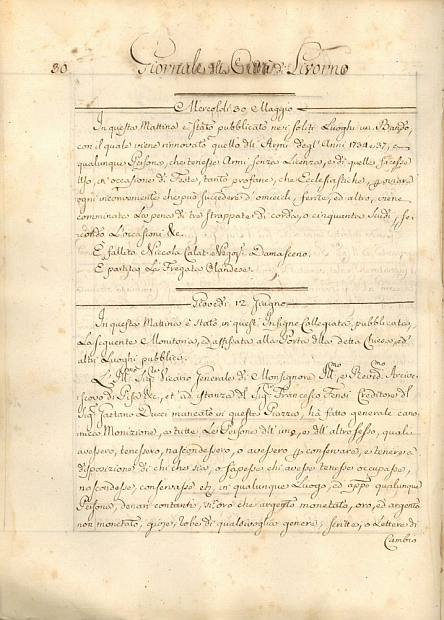 30 Giornale della Città di Livorno
Mercoldì 30 Maggio
In questa Mattina è stato pubblicato nei soliti Luoghi un Bando,
con il quale viene rinnovato quello dell'Armi degl'Anni 1734 e 37, e
qualunque Persona, che tenesse Armi senza Licenza, e di quelle facesse
uso, in occasione di Feste, tanto profane, che Ecclesiastiche, p ovviare
ogni inconveniente che può succedere d'omicidi, ferite, ed altro, viene
comminata La pena di tre strappate di corda, o cinquanta Scudi, se-
condo L'occasioni &c.
E fallito Niccola Calat Negoz.e Damasceno.
E partita La Fregata Olandese.
Giovedì 12 Giugno
In questa Mattina è stato in quest'Insigne Collegiata, pubblicata,
La sequente Monitoria, ed affissata alla Porta della detta Chiesa, ed
altri Luoghi pubblici.
L'Ill.mo Sig.re Vicario Generale di Monsignore Ill.mo e Rev.mo Arcive-
scovo di Pisa &c, et ad istanza del Sig.re Francesco Fensi Creditore del
Sig.re Gaetano Ducci mancato in questa Piazza, hà fatto generale cano-
nica Monizione, a tutte Le Persone dell'uno, e dell'altro sesso, quali
avessero, tenessero, nascondessero, o avessero p conservare, e tenere a
disposizione di chi che sia, o sapesse chi avesse tenesse occupasse,
nascondesse, conservasse etc, in qualunque Luogo, ed app.o qualunque
Persona, denari contanti, sia oro che argento monetato, oro, ed argento
non monetato, gioje, robe di qualsivoglia genere, scritte, o Lettere di
Cambio